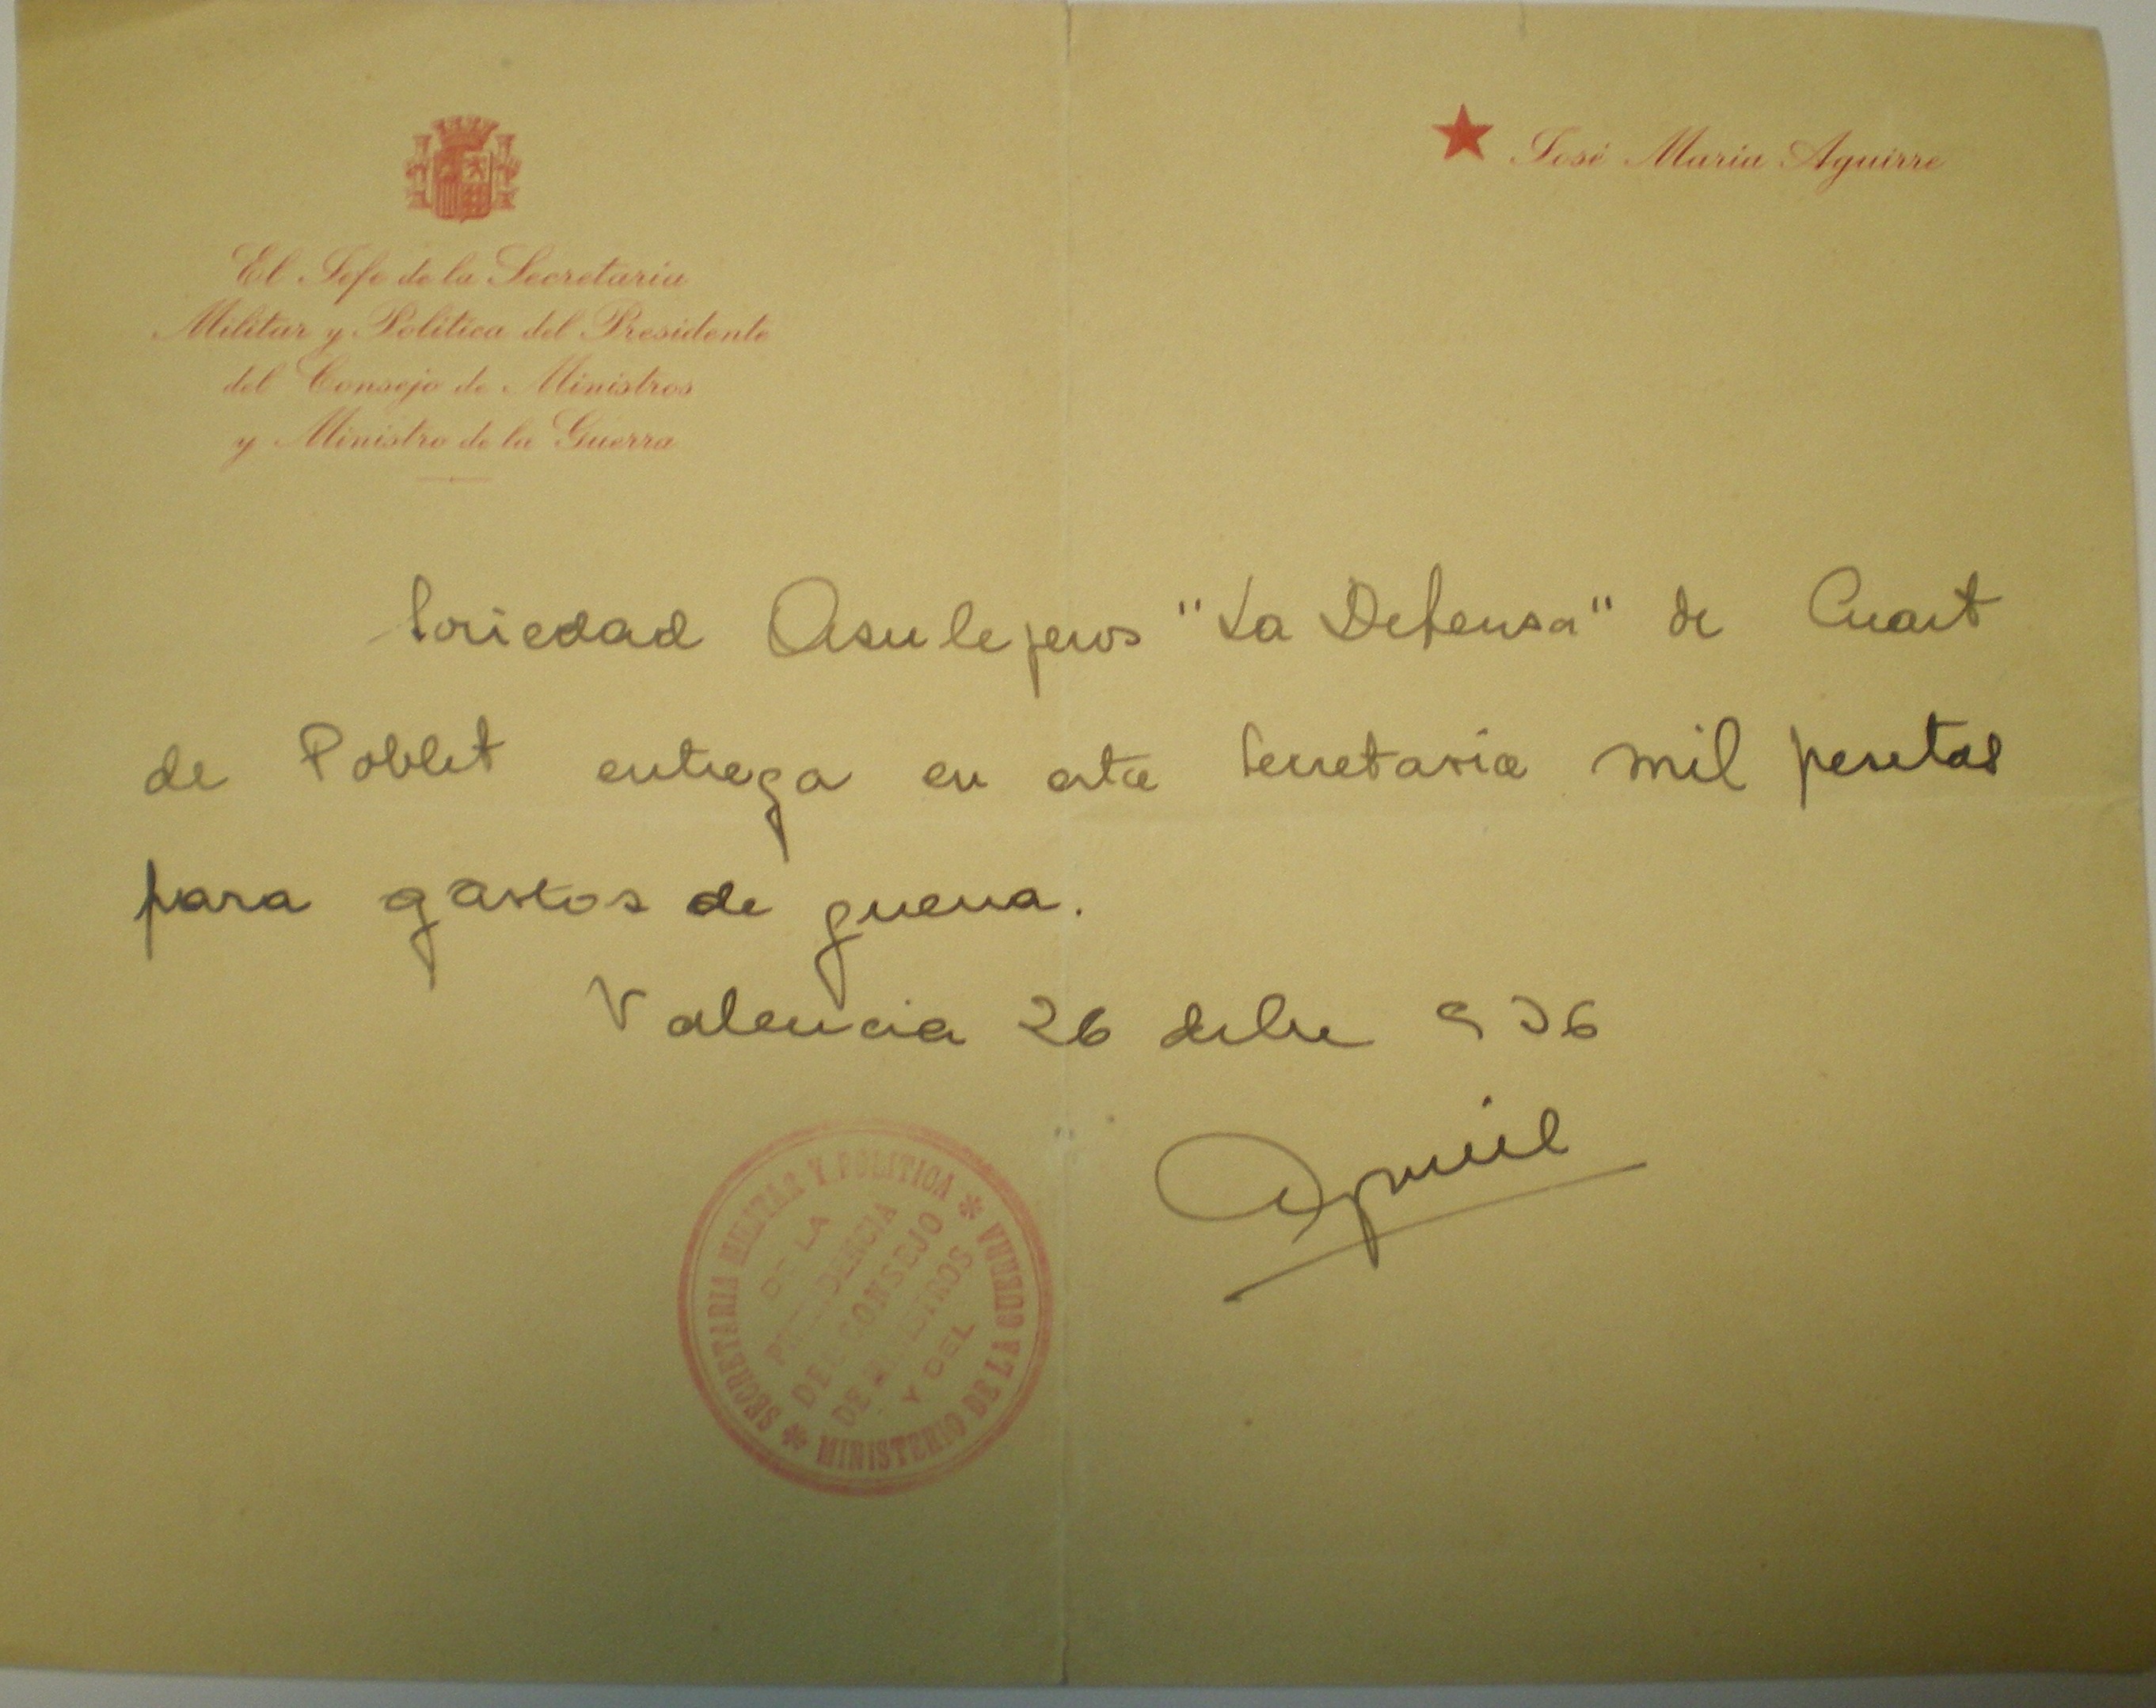 El Jefe de la Secretaria
Militar y Politica del Presidente
del Consejo de Ministros
y Ministro de la Guerra
José Maria Aguirre
Sociedad Asulejeros "La Defensa" de Cuart
de Poblet entrega en esta Secretaria mil pesetas
para gastos de guerra.
Valencia 26 dcbre 936
Aguirre
SECRETARIA MILITAR Y POLITICA
DE LA
PRESIDENCIA
DEL CONSEJO
DE MINISTROS
Y DEL
MINISTERIO DE LA GUERRA